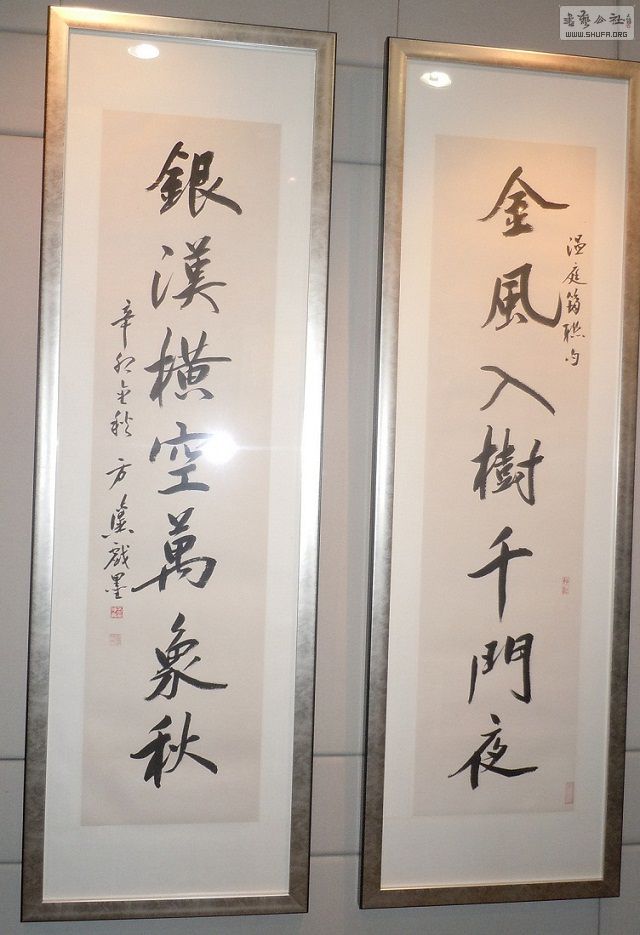 金風入樹千門夜
溫庭筠聯句
銀漢橫空萬象秋
辛卯金秋 方
戲墨
書藝公社
WWW.SHUFA.ORG